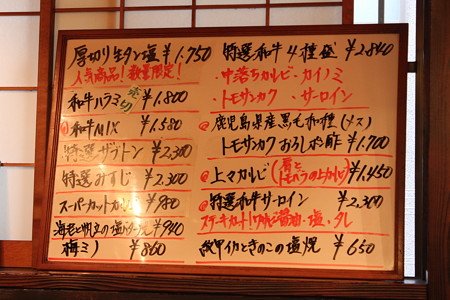 厚切り生タン塩 ¥1,750
人気商品!数量限定!
和牛ハラミ 売切 ¥1,800
和牛MIX ¥1,580
特選ザブトン ¥2,300
特選みすじ ¥2,300
スーパーカットカルビ ¥980
海老と帆立の塩バター焼 ¥940
梅ミノ ¥860
特選和牛4種盛 ¥2,840
・中落ちカルビ・カイノミ
・トモサンカク・サーロイン
鹿児島県産黒毛和種(メス)
トモサンカクおろしポン酢 ¥1,700
上マカルビ(肩とトモバラの上カルビ) ¥1,450
特選和牛サーロイン ¥2,300
ステーキカット!ワサビ醤油・塩・タレ
紋甲イカときのこの塩焼 ¥650